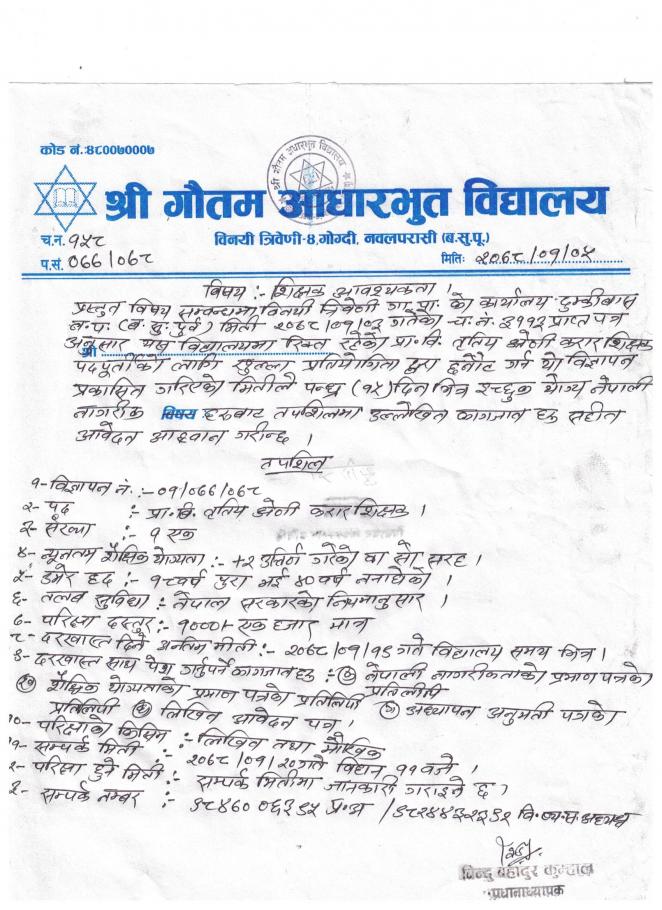 कोड नं.:४८००७०००७
श्री गौतम आधारभुत विद्यालय
श्री गौतम आधारभुत विद्यालय
विनयी त्रिवेणी-४,गोग्दी, नवलपरासी (ब.सु.पू.)
च.न. १५८
प.सं. ०७७/०७८
मितिः २०७८/०१/०५
विषय :- शिक्षक आवश्यकता ।
प्रस्तुत विषय सम्बन्धमा विनयी त्रिवेणी गा.पा. को कार्यालय दुम्कीबास
न.प. (ब. सु. पुर्व) मिती २०७८/०१/०३ गतेको च. नं. ३११२ प्राप्त पत्र
अनुसार यस श्री विद्यालयमा रिक्त रहेको प्रा.वि. तृतिय श्रेणी करार शिक्षक
पदपूर्तीको लागि खुल्ला प्रतियोगिता द्वारा छनौट गर्न यो विज्ञापन
प्रकासित गरिएको मितीले पन्ध्र (१५) दिन भित्र इच्छुक योग्य नेपाली
नागरीक विषय हरुबाट तपशिलमा उल्लेखित कागजात हरु सहीत
आवेदन आह्वान गरीन्छ ।
तपशिल
१- विज्ञापन नं. :- ०१/०७७/०७८
२- पद :- प्रा.वि. तृतिय श्रेणी करार शिक्षक ।
३- संख्या :- १ एक
४- न्यूनतम शैक्षिक योग्यता :- +२ उत्तिर्ण गरेको वा सो सरह ।
५- उमेर हद :- १८ वर्ष पुरा भई ४० वर्ष ननाघेको ।
६- तलब सुविधा :- नेपाल सरकारको नियमानुसार ।
७- परिक्षा दस्तुर :- १०००।- एक हजार मात्र
८- दरखास्त दिने अन्तिम मीती :- २०७८/०१/१९ गते विद्यालय समय भित्र ।
९- दरखास्त साथ पेश गर्नुपर्ने कागजात हरु :- (क) नेपाली नागरीकताको प्रमाण पत्रको प्रतिलीपी
(ख) शैक्षिक योग्यताको प्रमाण पत्रको प्रतिलिपी (ग) अध्यापन अनुमती पत्रको
प्रतिलिपी (घ) लिखित आवेदन पत्र ।
१०- परिक्षाको किसिम :- लिखित तथा मौखिक
१- सम्पर्क मिती :- २०७८/०१/२० गते विहान ११ बजे ।
२- परिक्षा हुने मिती :- सम्पर्क मितीमा जानकारी गराइने छ ।
३- सम्पर्क नम्बर :- ९८४६००६३९५ प्र.अ / ९८२४४३२३९२ वि.व्य.स. अध्यक्ष
विन्दु बहादुर कुम्हाल
प्रधानाध्यापक